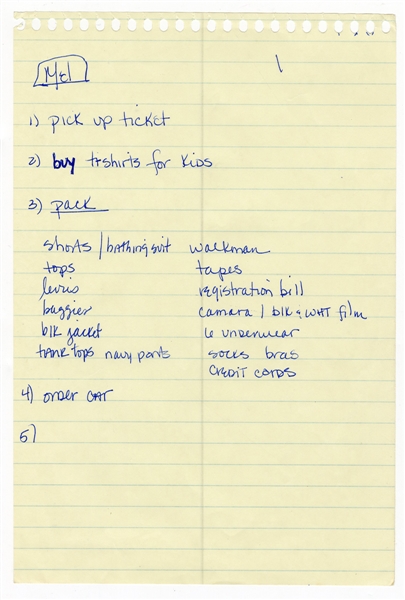 Mel
1
1) pick up ticket
2) buy t-shirts for kids
3) pack
shorts / bathing suit walkman
tops tapes
levis registration bill
baggies camara / blk & WHT film
blk jacket 6 underwear
tank tops navy pants socks bras
CREDIT CARDS
4) order
5)